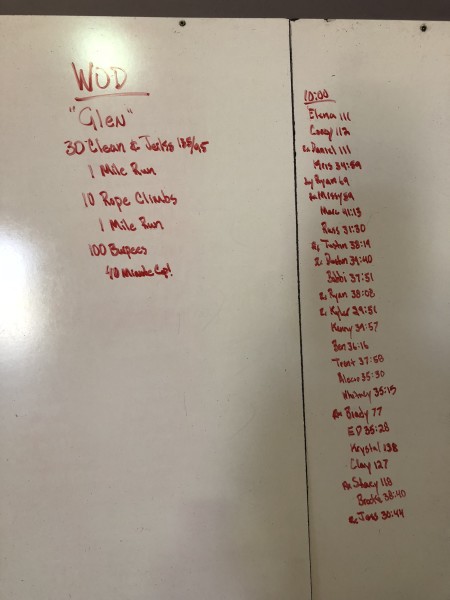 WOD
"Glen"
30 Clean & Jerks 135/95
1 Mile Run
10 Rope Climbs
1 Mile Run
100 Burpees
40 Minute Cap!
10:00
Elena 111
Corey 112
Daniel 111
Kris 39:59
Ryan 69
Missy 89
Marc 41:13
Russ 31:30
Justin 38:19
Dustin 39:40
Bobbi 37:51
Rx Ryan 38:08
Rx Kyler 29:51
Kenny 39:57
Ben 36:16
Trent 37:58
35:30
Whitney 35:15
Brady 77
ED 35:28
Krystal 138
Clay 127
Stacy 118
Brooke 38:40
Rx James 30:44